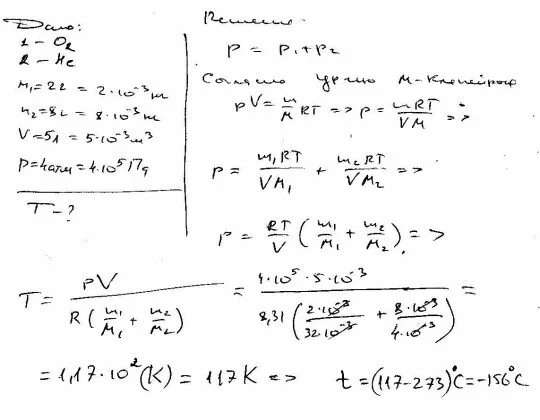 Дано:
1 – O₂
2 – He
m₁ = 2г = 2·10⁻³ кг
m₂ = 8г = 8·10⁻³ кг
V = 5л = 5·10⁻³ м³
P = 4атм = 4·10⁵ Па
T – ?
Решение:
P = P₁ + P₂
Согласно ур-нию М-Клапейрона
pV = m/M RT => p = mRT/VM =>
p = m₁RT/VM₁ + m₂RT/VM₂ =>
p = RT/V (m₁/M₁ + m₂/M₂) = >
T = pV / R(m₁/M₁ + m₂/M₂) = 4·10⁵·5·10⁻³ / 8,31(2·10⁻³/32·10⁻³ + 8·10⁻³/4·10⁻³) =
= 1,17·10² (K) = 117 K => t = (117-273)°C = -156°C